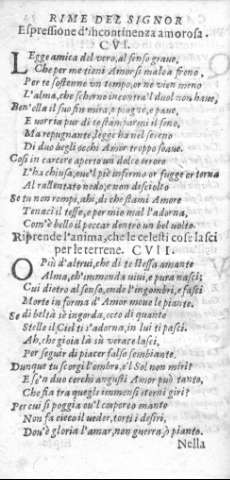 RIME DEL SIGNOR
Espressione d'incontinenza amorosa.
CVI.
LEgge amica del vero, al senso grave,
Che per me tieni Amor sì malo a freno,
Per te sostenne un tempo, or ne vien meno
L'alma, che schermo incontra'l duol non have,
Ben'ella il suo fin mira, e piagne, e pave,
E vorria pur di te stamparmi il seno,
Ma repugnante legge ha nel sereno
Di duo begli occhi Amor troppo soave.
Così in carcere aperto un dolce errore
L'ha chiusa, ove'l piè infermo or fugge or torna
Al rallentato nodo, e non disciolto
Se tu non rompi, ahi, di che stami Amore
Tenaci il tesse, e per mio mal l'adorna,
Com'è bello il peccar dentro un bel volto.
Riprende l'anima, che le celesti cose lasci
per le terrene. CVII.
O Più d'altrui, che di te stessa amante
Alma, ch'immonda vivi, e pura nasci;
Cui dietro al senso, onde l'ingombri, e fasci
Morte in forma d'Amor move le piante.
Se di beltà sè ingorda, ecco di quante
Stelle il Ciel ti s'adorna, in lui ti pasci.
Ah, che gioia là sù verace lasci,
Per seguir di piacer falso sembiante.
Dunque tu scorgi l'ombre, e'l Sol non miri?
E se'n duo cerchi angusti Amor può tanto,
Che fia tra quegli immensi eterni giri?
Per cui si poggia ov'l corporeo manto
Non fa cieco il veder, torti i desiri,
Dov'è gloria l'amar, non guerra, o pianto.
Nella